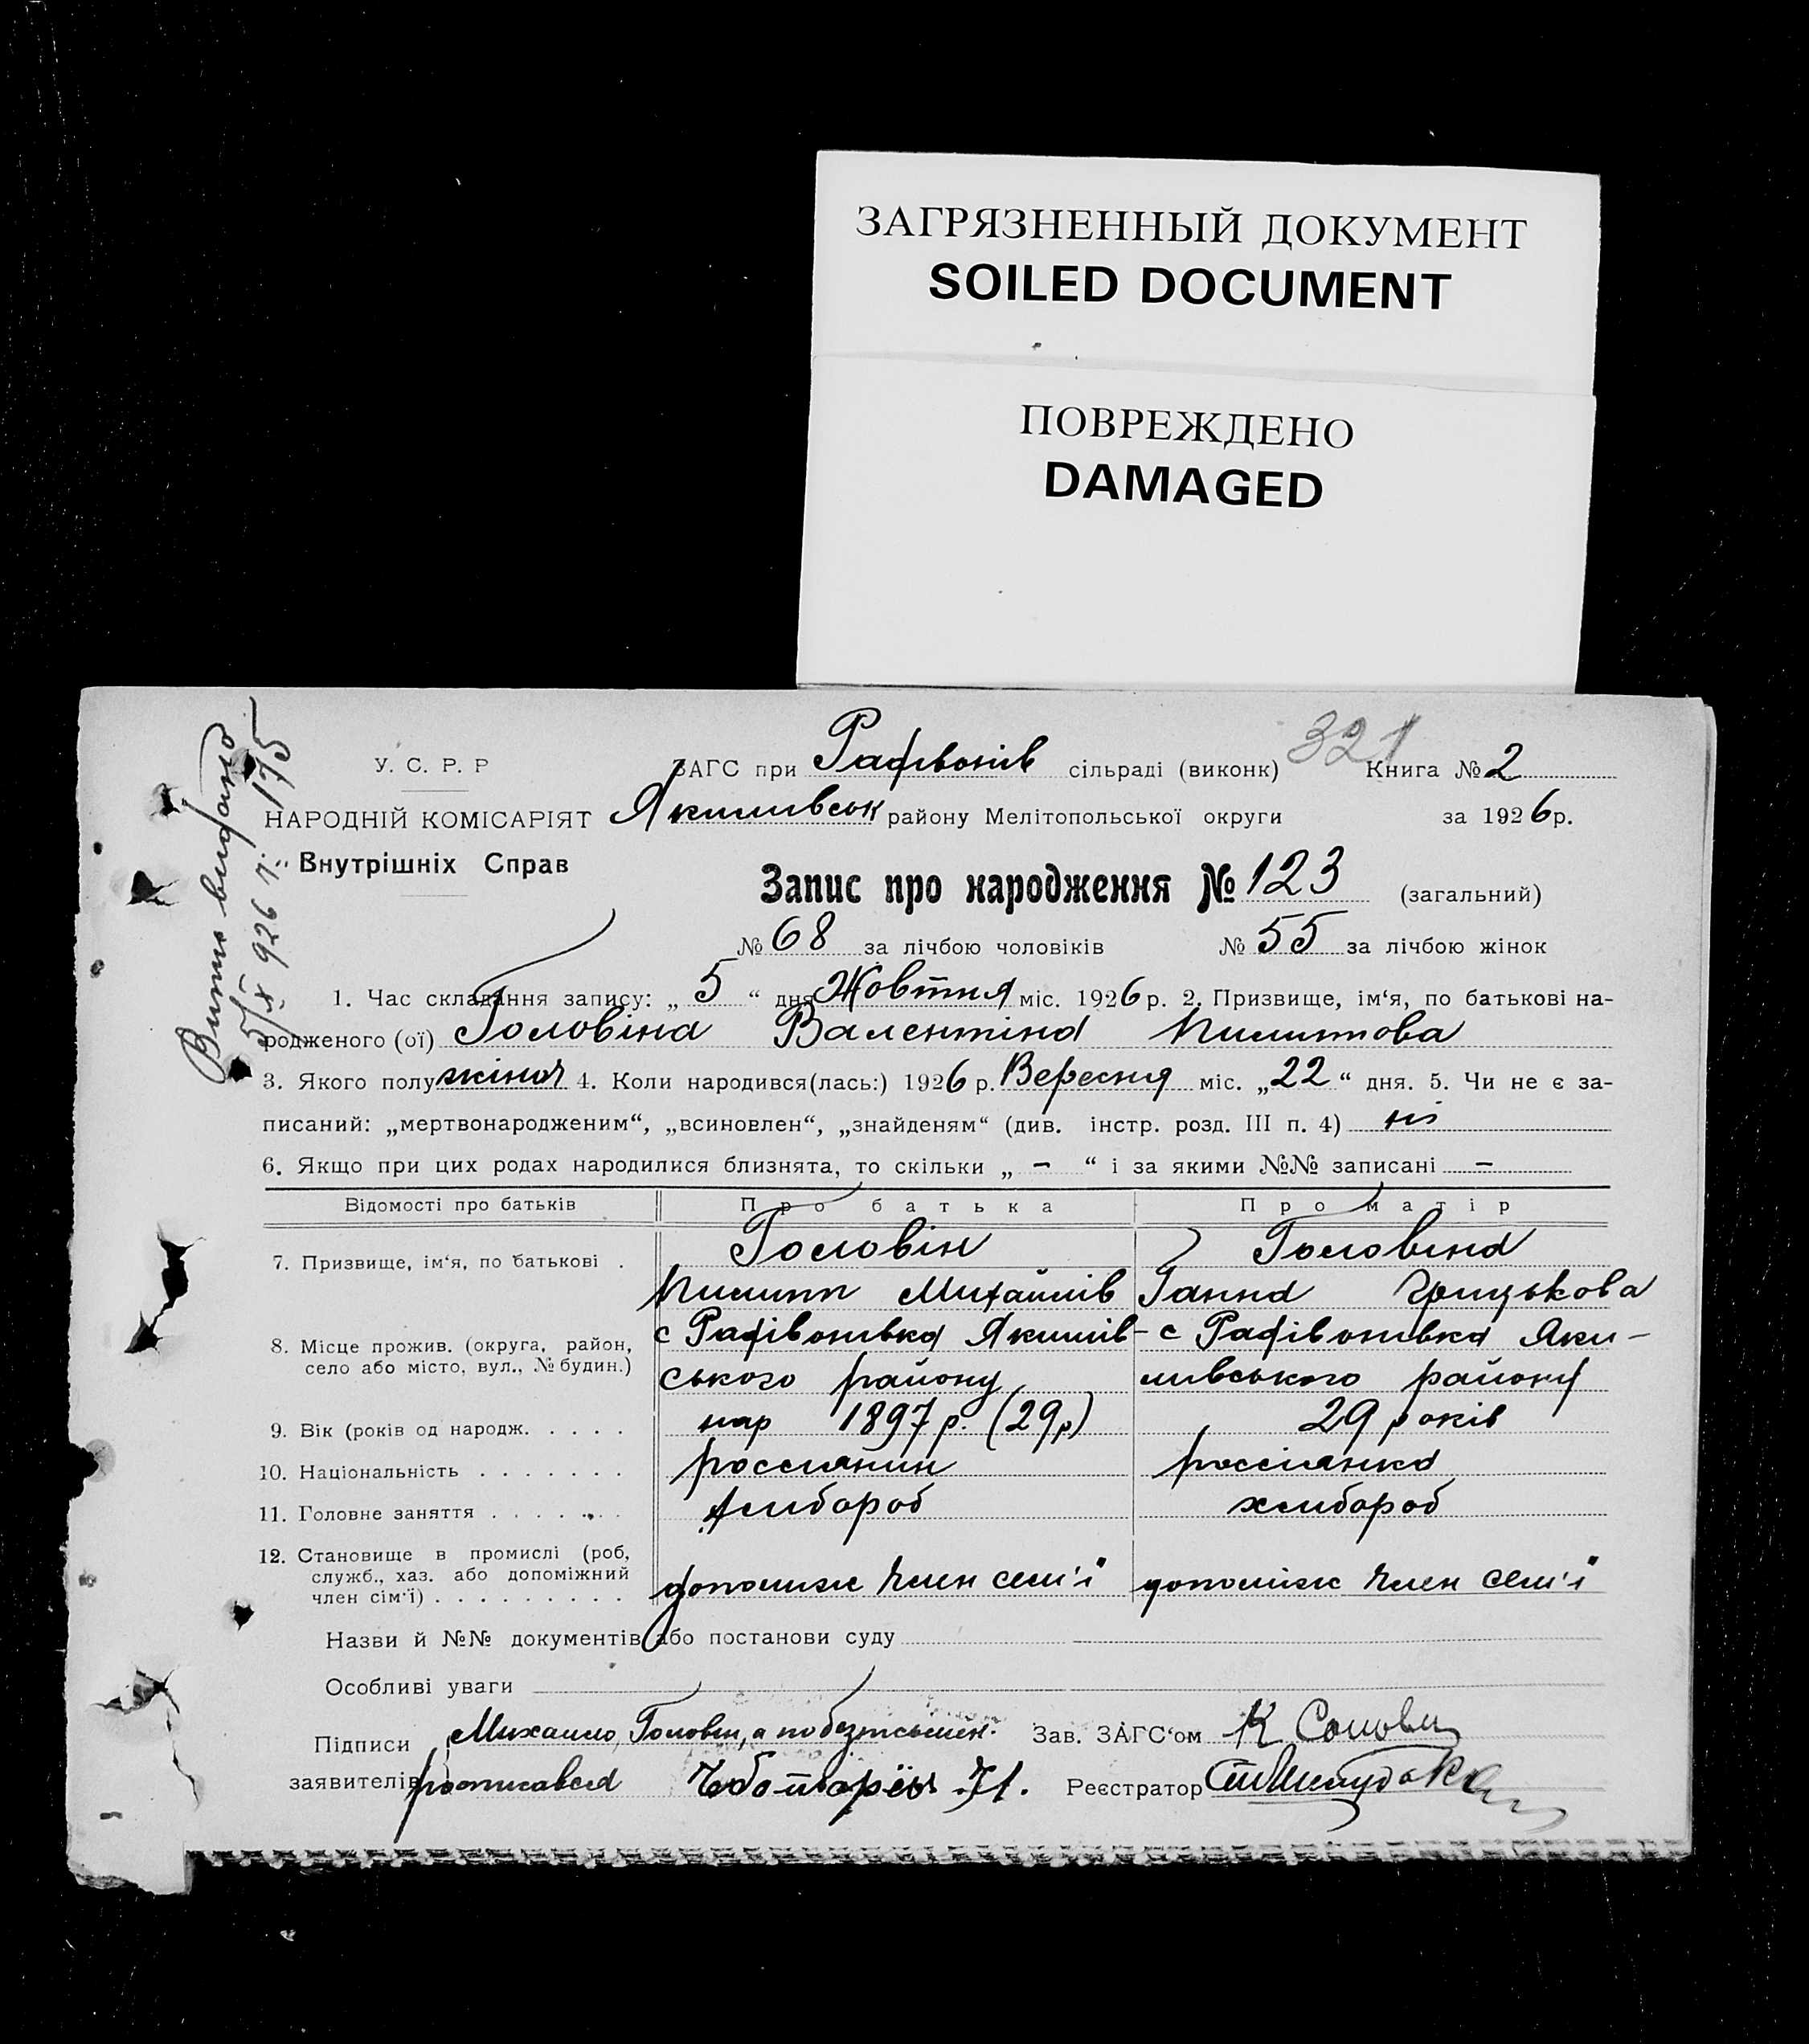 ЗАГРЯЗНЕННЫЙ ДОКУМЕНТ
SOILED DOCUMENT
ПОВРЕЖДЕНО
DAMAGED
321
У. С. Р. Р
ЗАГС при Радівонів сільраді (виконк) Книга № 2
НАРОДНІЙ КОМІСАРІЯТ Якимівськ району Мелітопольської округи за 1926 р.
Внутрішніх Справ
Витяг видано
5/X 926 р. 175
Запис про народження № 123 (загальний)
№ 68 за лічбою чоловіків № 55 за лічбою жінок
1. Час складання запису: „ 5 “ дня Жовтня міс. 1926 р. 2. Призвище, ім‘я, по батькові на-
родженого (ої) Головіна Валентіна Пилипова
3. Якого полу жіноч 4. Коли народився(лась:) 1926 р. Вересня міс. „22“ дня. 5. Чи не є за-
писаний: „мертвонародженим“, „всиновлен“, „знайденям“ (див. інстр. розд. III п. 4) ні
6. Якщо при цих родах народилися близнята, то скільки „ – “ і за якими №№ записані –
Відомості про батьків Про батька Про матір
7. Призвище, ім‘я, по батькові . Головін Головіна
Пилип Михайлів Ганна Грицькова
8. Місце прожив. (округа, район, с Радівонівка Якимів- с Радівонівка Яки-
село або місто, вул., № будин.) ського району мивського району
9. Вік (років од народж. . . . . нар 1897 р. (29 р) 29 років
10. Національність . . . . . . . россиянин россіянка
11. Головне заняття . . . . . . хлибороб хлибороб
12. Становище в промислі (роб,
служб., хаз. або допоміжний
член сім‘ї) . . . . . . . . . допоміж член сем'ї допоміж член сем'ї
Назви й №№ документів або постанови суду
Особливі уваги
Підписи Михаило Головін, а по безписьмен. Зав. ЗАГС‘ом К
заявителів росписався Чоботарёв Реєстратор